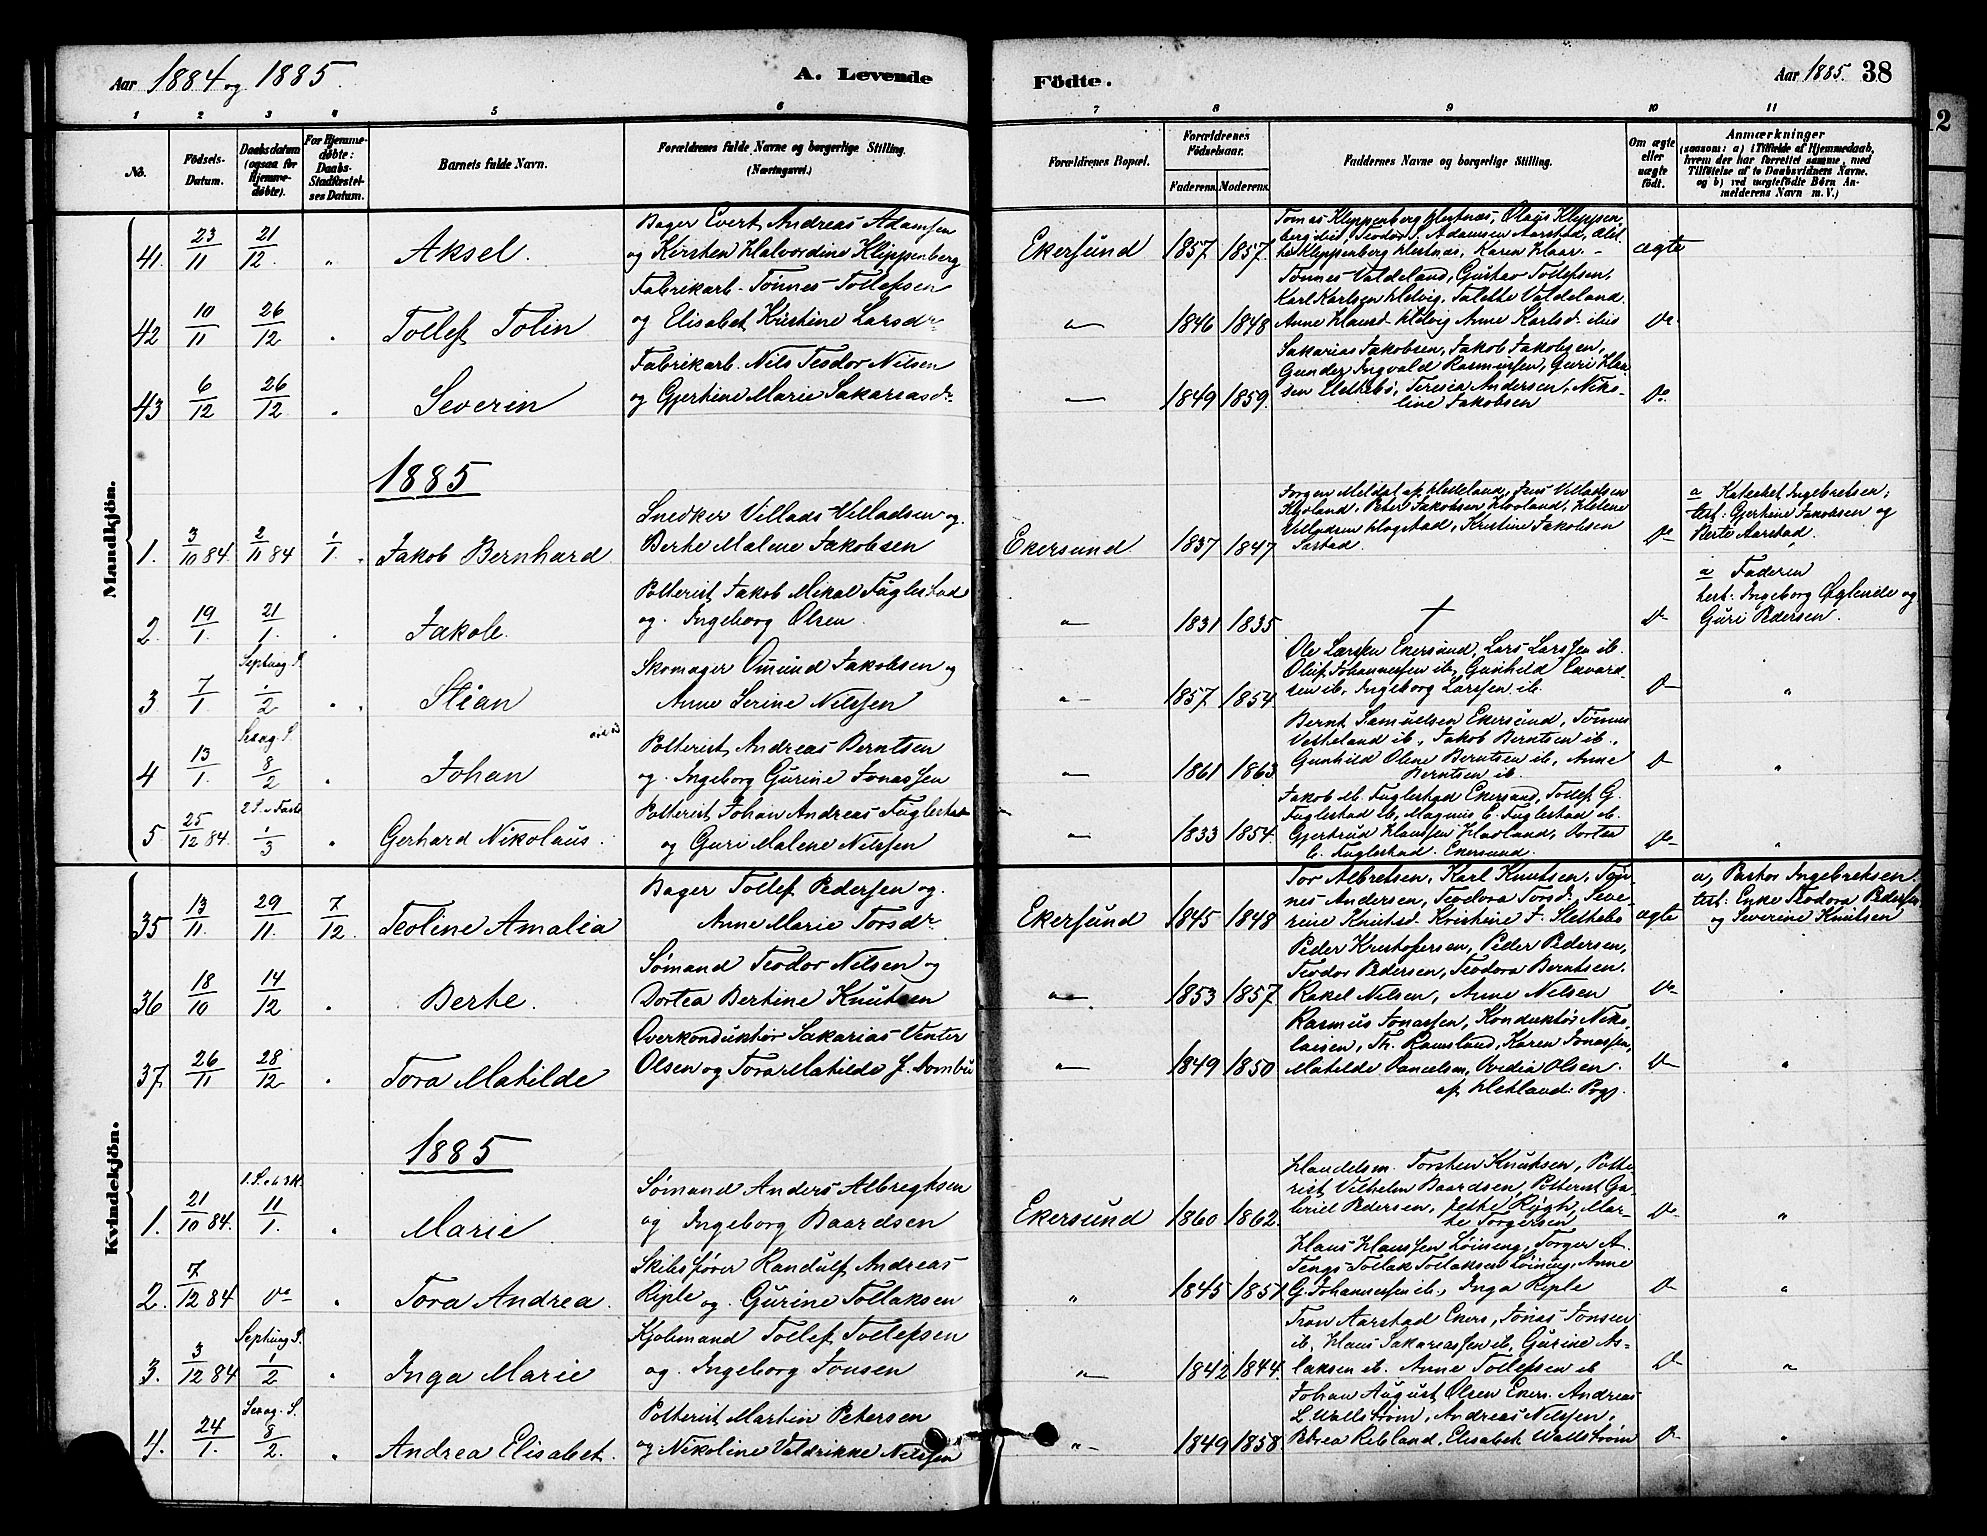 Aar 1884 og 1885.
A. Levende
Födte.
Aar 1885.
38
12
1 2 3 4 5 6 7 8 9 10 11
No.
Födsels-
Datum.
Daabsdatum
(ogsaa for
Hjemme-
döbte).
For Hjemme-
döbte:
Daabs-
Stadfæstel-
ses Datum.
Barnets fulde Navn.
Forældrenes fulde Navne og borgerlige Stilling.
(Næringsvei.)
Forældrenes Bopæl.
Forældrenes
Födselsaar.
Faderens. Moderens.
Faddernes Navne og borgerlige Stilling.
Om ægte
eller
uægte
födt.
Anmærkninger
(saasom: a) i Tilfælde af Hjemmedaab,
hvem der har forrettet samme, med
Tilföielse af to Daabsvidners Navne,
og b) ved uægtefödte Börn An-
melderens Navn m. V.)
Mandkjön.
41. 23/11 21/12. " Aksel.
Bager Evert Andreas Adamsen
og Kirsten Halvordine Kleppenberg
Ekersund 1857 1857.
Tomas Kleppenberg Hestnæs, Olaus Kleppen-
berg ibid, Teodor S. Adamsen Aarstad,
Kleppenberg Hestnæs, Karen Haar. -
ægte
42 10/11 26/12 " Tollef Tolin
Fabrikarb. Tönnes Tollefsen
og Elisabet Kirstine Larsdr
" 1846 1848
Tönnes Valdeland, Gustav Tollefsen,
Karl Karlsen Helvig, Talette Valdeland.
Anne Hansd. Helvig Anne Karlsd. ibid
Do
43 6/12 26/12 " Severin
Fabrikarb. Nils Teodor Nilsen
og Gjertine Marie Sakariasdr
" 1849 1859.
Sakarias Jakobsen, Jakob Jakobsen,
Gunder Ingvald Rasmussen, Guri Han-
sen Slettebö, Teresia Andersen, Niko-
line Jakobsen
Do
1885
1. 3/10 84. 2/11 84 1/1. Jakob Bernhard.
Snedker Villads Villadsen og
Berte Malene Jakobsen
Ekersund 1837 1847
Jörgen Meldal af Hetland, Jens Villadsen
Hovland, Peter Jakobsen Hovland, Helene
Villadsen Hogstad, Kristine Jakobsen
Sastad.
Do
a Kateket Ingebretsen;
test: Gjertine Jakobsen og
Berte Aarstad.
2. 19/1. 21/1. " Jakob.
Potterist Jakob Mikal Fuglestad
og Ingeborg Olsen.
" 1831 1835
†
Do
a Faderen
test: Ingeborg Oglende og
Guri Pedersen.
3 7/1 Septuag. S. 1/2 " Stian
Skomager Omund Jakobsen og
Anne Serine Nilssen
" 1857 1854.
Ole Larssen Ekersund, Lars Larssen ib.
Oluf Johannessen ib, Gunhild Edvard-
sen ib, Ingeborg Larssen ib.
Do "
4 13/1. Sexag. S. 8/2 " Johan
Potterist Andreas Berntsen
og Ingeborg Gurine Jonassen
" 1861 1863
Bernt Samuelsen Ekersund, Tönnes
Vesheland ib, Jakob Berntsen ib.,
Gunhild Olene Berntsen ib, Anne
Berntsen ib.
Do "
5 25/12 84. 2 S. i Faste 1/3 " Gerhard Nikolaus.
Potterist Johan Andreas Fuglestad
og Guri Malene Nilssen
" 1833 1854.
Jakob M. Fuglestad Ekersund, Tollef G.
Fuglestad ib, Magnus E. Fuglestad ib.
Gjertrud Hanssen Hovland, Dortea
E. Fuglestad. Ekersund.
Do "
Kvindekjön.
35 13/11. 29/11. 7/12. Teoline Amalia
Bager Tollef Pedersen og
Anne Marie Torsdr
Ekersund 1845 1848
Tor Albretsen, Karl Knutsen, Tön-
nes Andersen, Teodora Torsd. Seve-
rine Knutsd. Kristine F. Slettebö
ægte
a, Pastor Ingebretsen.
test: Enke Teodora Pedersen
og Severine Knutsen
36 18/10 14/12 " Berte.
Sömand Teodor Nilsen og
Dortea Bertine Knutsen
" 1853 1857
Peder Kristofersen, Peder Pedersen,
Teodor Pedersen, Teodora Berntsen.
Rakel Nilsen, Anne Nilsen
Do "
37. 26/11 28/12 " Tora Matilde
Overkonduktör Sakarias Venter
Olsen og Tora Matilde J. Tombu
" 1849 1850
Rasmus Jonassen, Konduktör Niko-
laisen, Th. Ramsland, Karen Jonassen,
Matilde Danielsen, Ovedia Olsen
af Hetland: Pogs.
Do "
1885
1. 21/10 84. 1. S. e. h. 3 K. 11/1. " Marie
Sömand Anders Albregtsen
og Ingeborg Baardsen
Ekersund 1860 1862.
Handelsm. Torsten Knutsen, Potte-
rist Vilhelm Baardsen, Potterist Ga-
briel Pedersen, Jette Rygh, Mar-
te Torgersen
Do "
2. 7/12 84 Do " Tora Andrea.
Skibsförer Randulf Andreas
Riple og Gurine Tollaksen
" 1845 1851
Hans Hanssen Löining, Torger A.
Tengs Tollak Tollaksen Löining, Anne
G. Johannessen ib., Inga Riple
Do "
3. 3/12 84 Septuag S. 1/2 " Inga Marie
Kjöbmand Tollef Tollefsen
og Ingeborg Jonsen
" 1842 1844.
Tron Aarstad Ekers, Jonas Jonsen
ib, Hans Sakariassen ib, Gurine As-
laksen ib. Anne Tollefsen ib
Do "
4. 24/1. Sexag. S. 8/2. " Andrea Elisabet.
Potterist Martin Petersen
og Nikoline Valdrikke Nilssen
" 1849 1858
Johan August Olsen Ekers. Andreas
L. Wallström, Andreas Nilssen,
Petrea Rebland, Elisabet Wallström
Do "